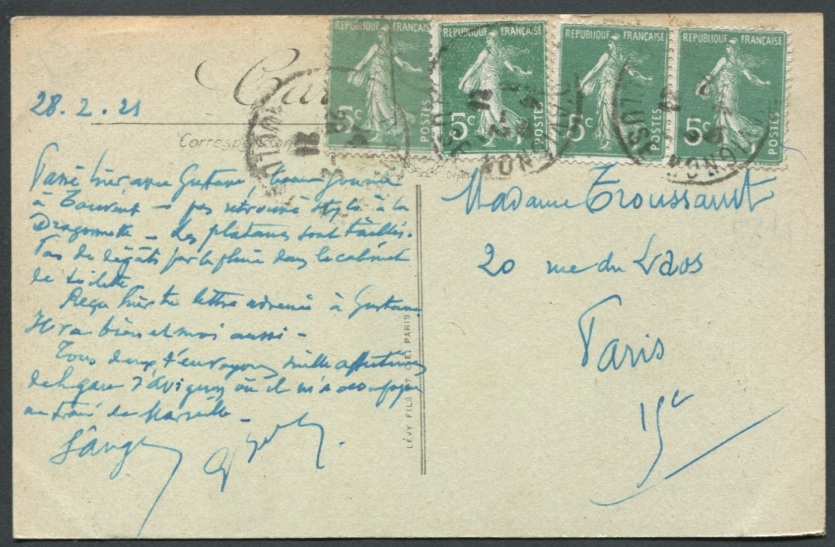 RÉPUBLIQUE FRANÇAISE
5c POSTES
RÉPUBLIQUE FRANÇAISE
5c POSTES
RÉPUBLIQUE FRANÇAISE
5c POSTES
RÉPUBLIQUE FRANÇAISE
5c POSTES
28.2.21
Passé hier avec Gustave bonne journée
à – pas retrouvé stylo à la
Dragonnette – Les platanes sont taillés.
Pas de dégâts par la pluie dans le cabinet
de toilette
Reçu hier ta lettre adressée à Gustave
Il va bien et moi aussi –
Tous deux t'envoyons mille affections
de la gare d'Avignon où il m'a accompagné
au train de Marseille –
Madame Troussault
20 rue du Laos
Paris
15e
LÉVY FILS ET CIE PARIS